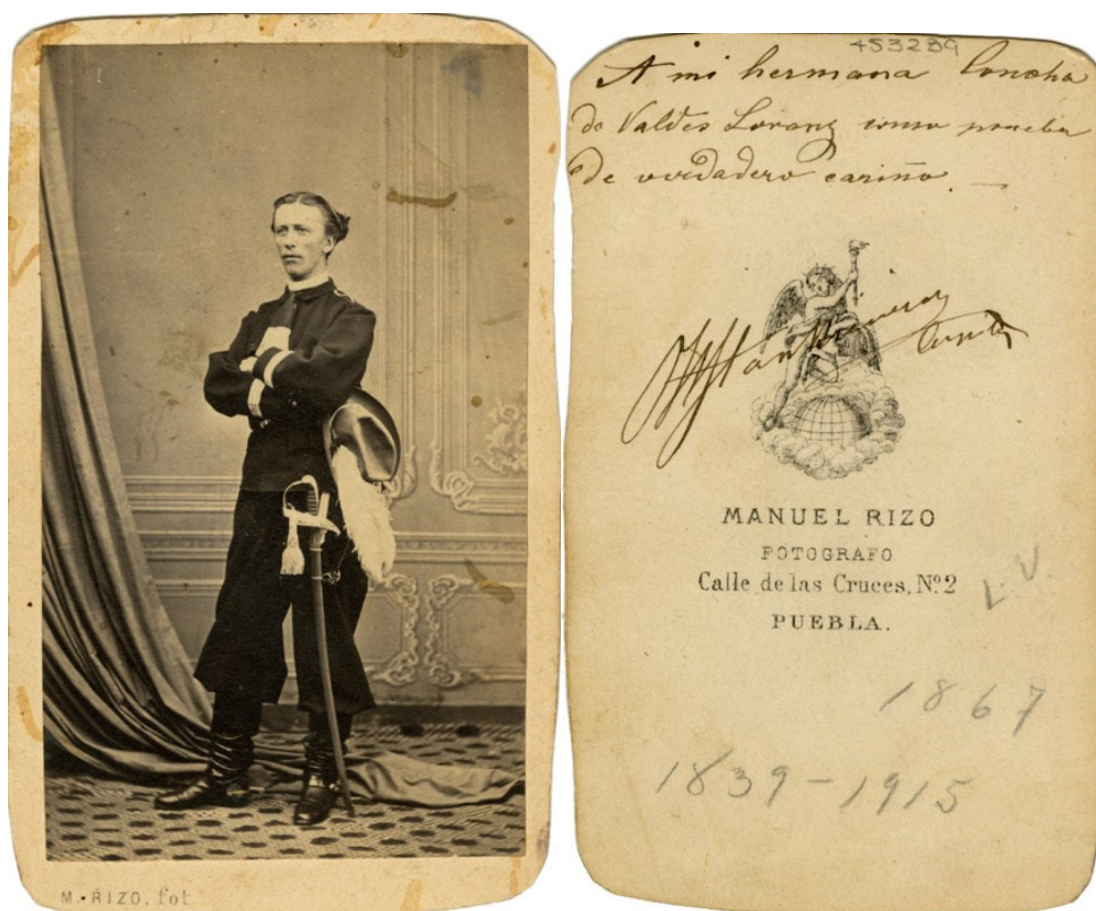 M. RIZO, fot
453289
A mi hermana Concha
de Valdes como prueba
de verdadero cariño. —
MANUEL RIZO
FOTOGRAFO
Calle de las Cruces, Nº 2
PUEBLA.
L.V.
1867
1839-1915